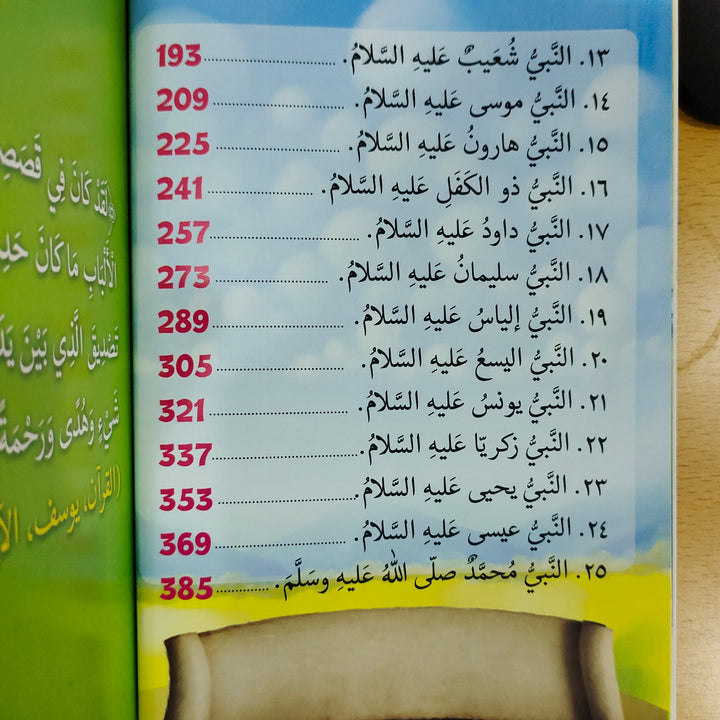 ١٣. النَّبيُّ شُعَيبٌ عَليهِ السَّلامُ. 193
١٤. النَّبيُّ موسى عَليهِ السَّلامُ. 209
١٥. النَّبيُّ هارونُ عَليهِ السَّلامُ. 225
١٦. النَّبيُّ ذو الكَفَلِ عَليهِ السَّلامُ. 241
١٧. النَّبيُّ داودُ عَليهِ السَّلامُ. 257
١٨. النَّبيُّ سليمانُ عَليهِ السَّلامُ. 273
١٩. النَّبيُّ إلياسُ عَليهِ السَّلامُ. 289
٢٠. النَّبيُّ اليسعُ عَليهِ السَّلامُ. 305
٢١. النَّبيُّ يونسُ عَليهِ السَّلامُ. 321
٢٢. النَّبيُّ زكريّا عَليهِ السَّلامُ. 337
٢٣. النَّبيُّ يحيى عَليهِ السَّلامُ. 353
٢٤. النَّبيُّ عيسى عَليهِ السَّلامُ. 369
٢٥. النَّبيُّ مُحمَّدٌ صلّى اللهُ عَليهِ وسَلَّمَ. 385
لَقَدْ كَانَ فِي
الْأَلْبَابِ مَا كَانَ
تَصْدِيقَ الَّذِي بَيْنَ
شَيْءٍ وَهُدًى وَرَحْمَةً
(القرآن، يوسف،